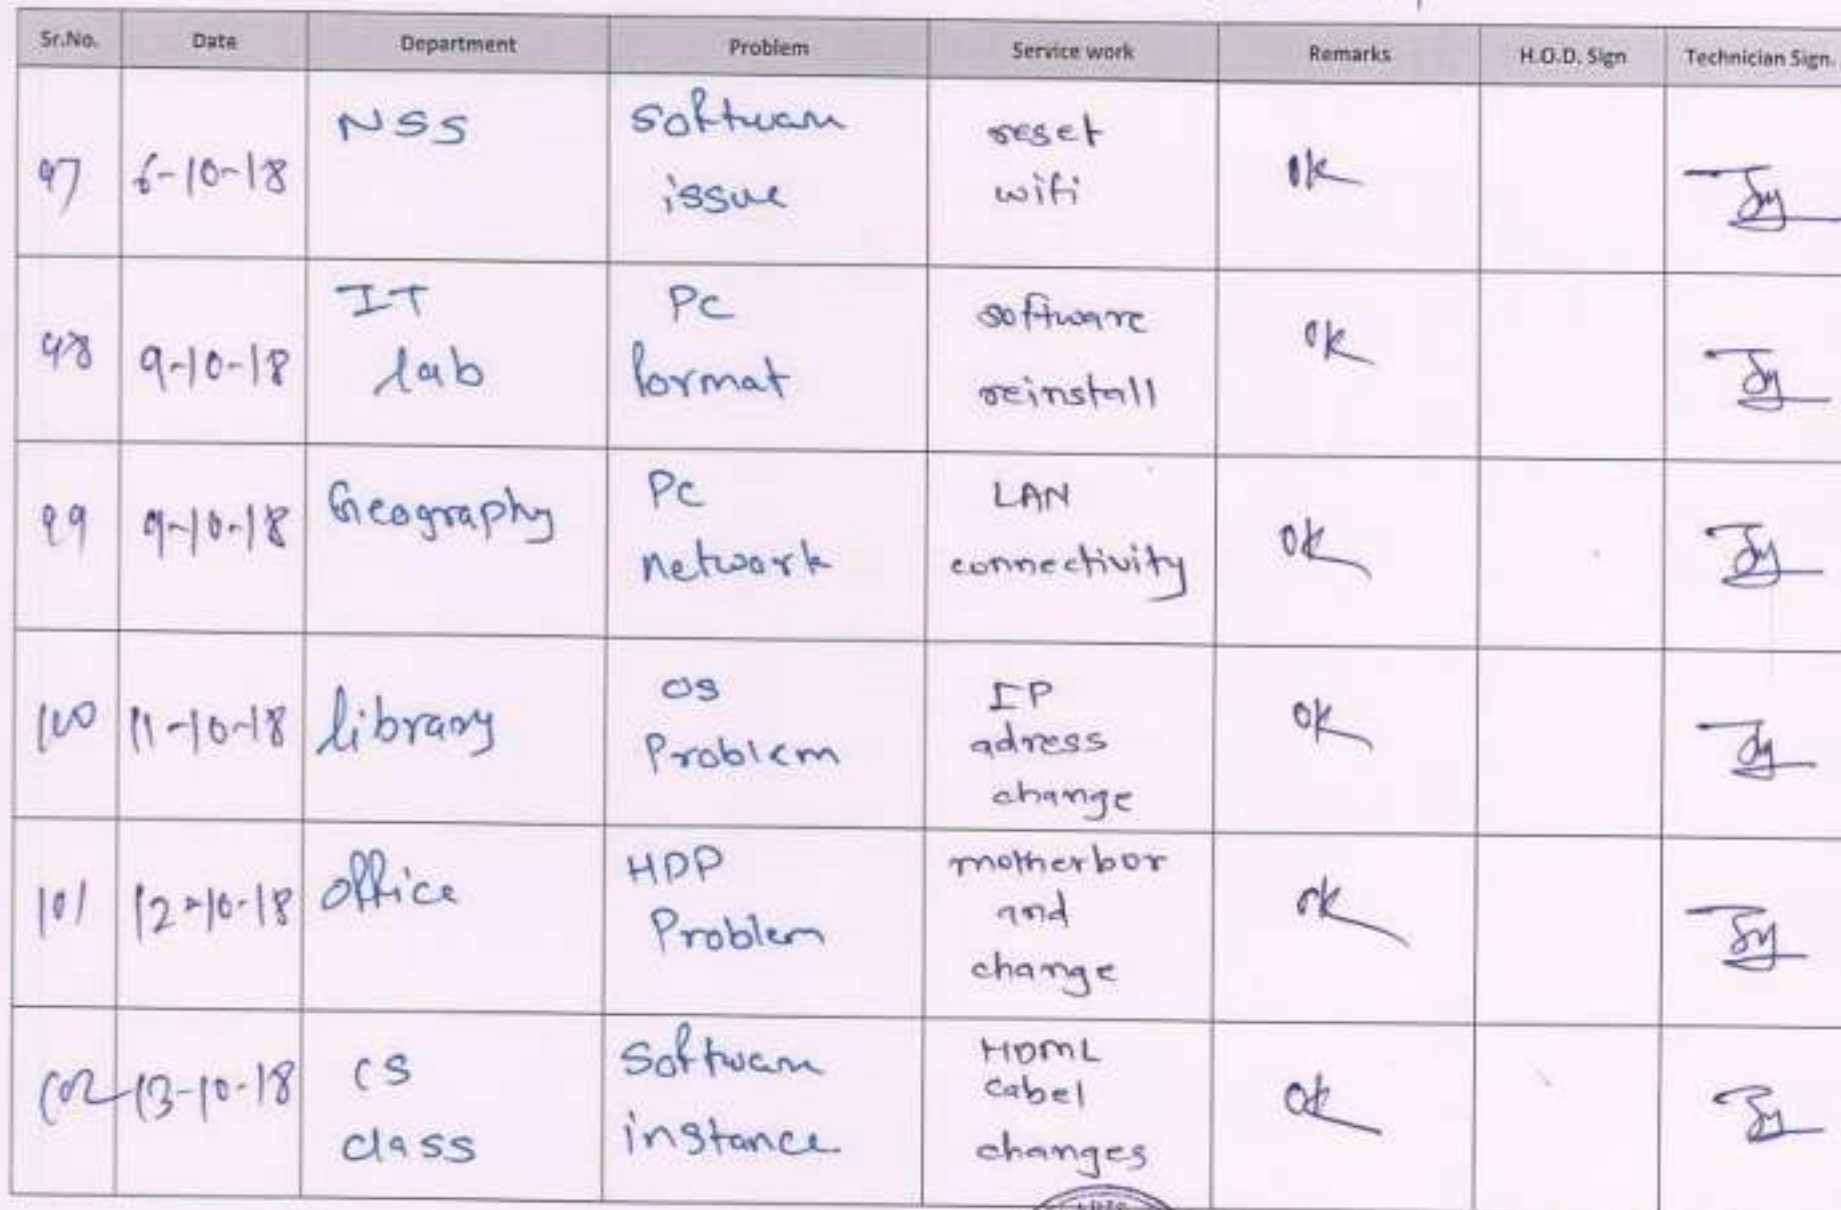 Sr.No. Date Department Problem Service work Remarks H.O.D. Sign Technician Sign.
97 6-10-18 NSS Software issue reset wifi ok
98 9-10-18 IT lab PC format software reinstall ok
99 9-10-18 Geography PC network LAN connectivity ok
100 11-10-18 library OS Problem IP adress change ok
101 12-10-18 office HDD Problem motherbor and change ok
102 13-10-18 CS class Software instance HDML cabel changes ok